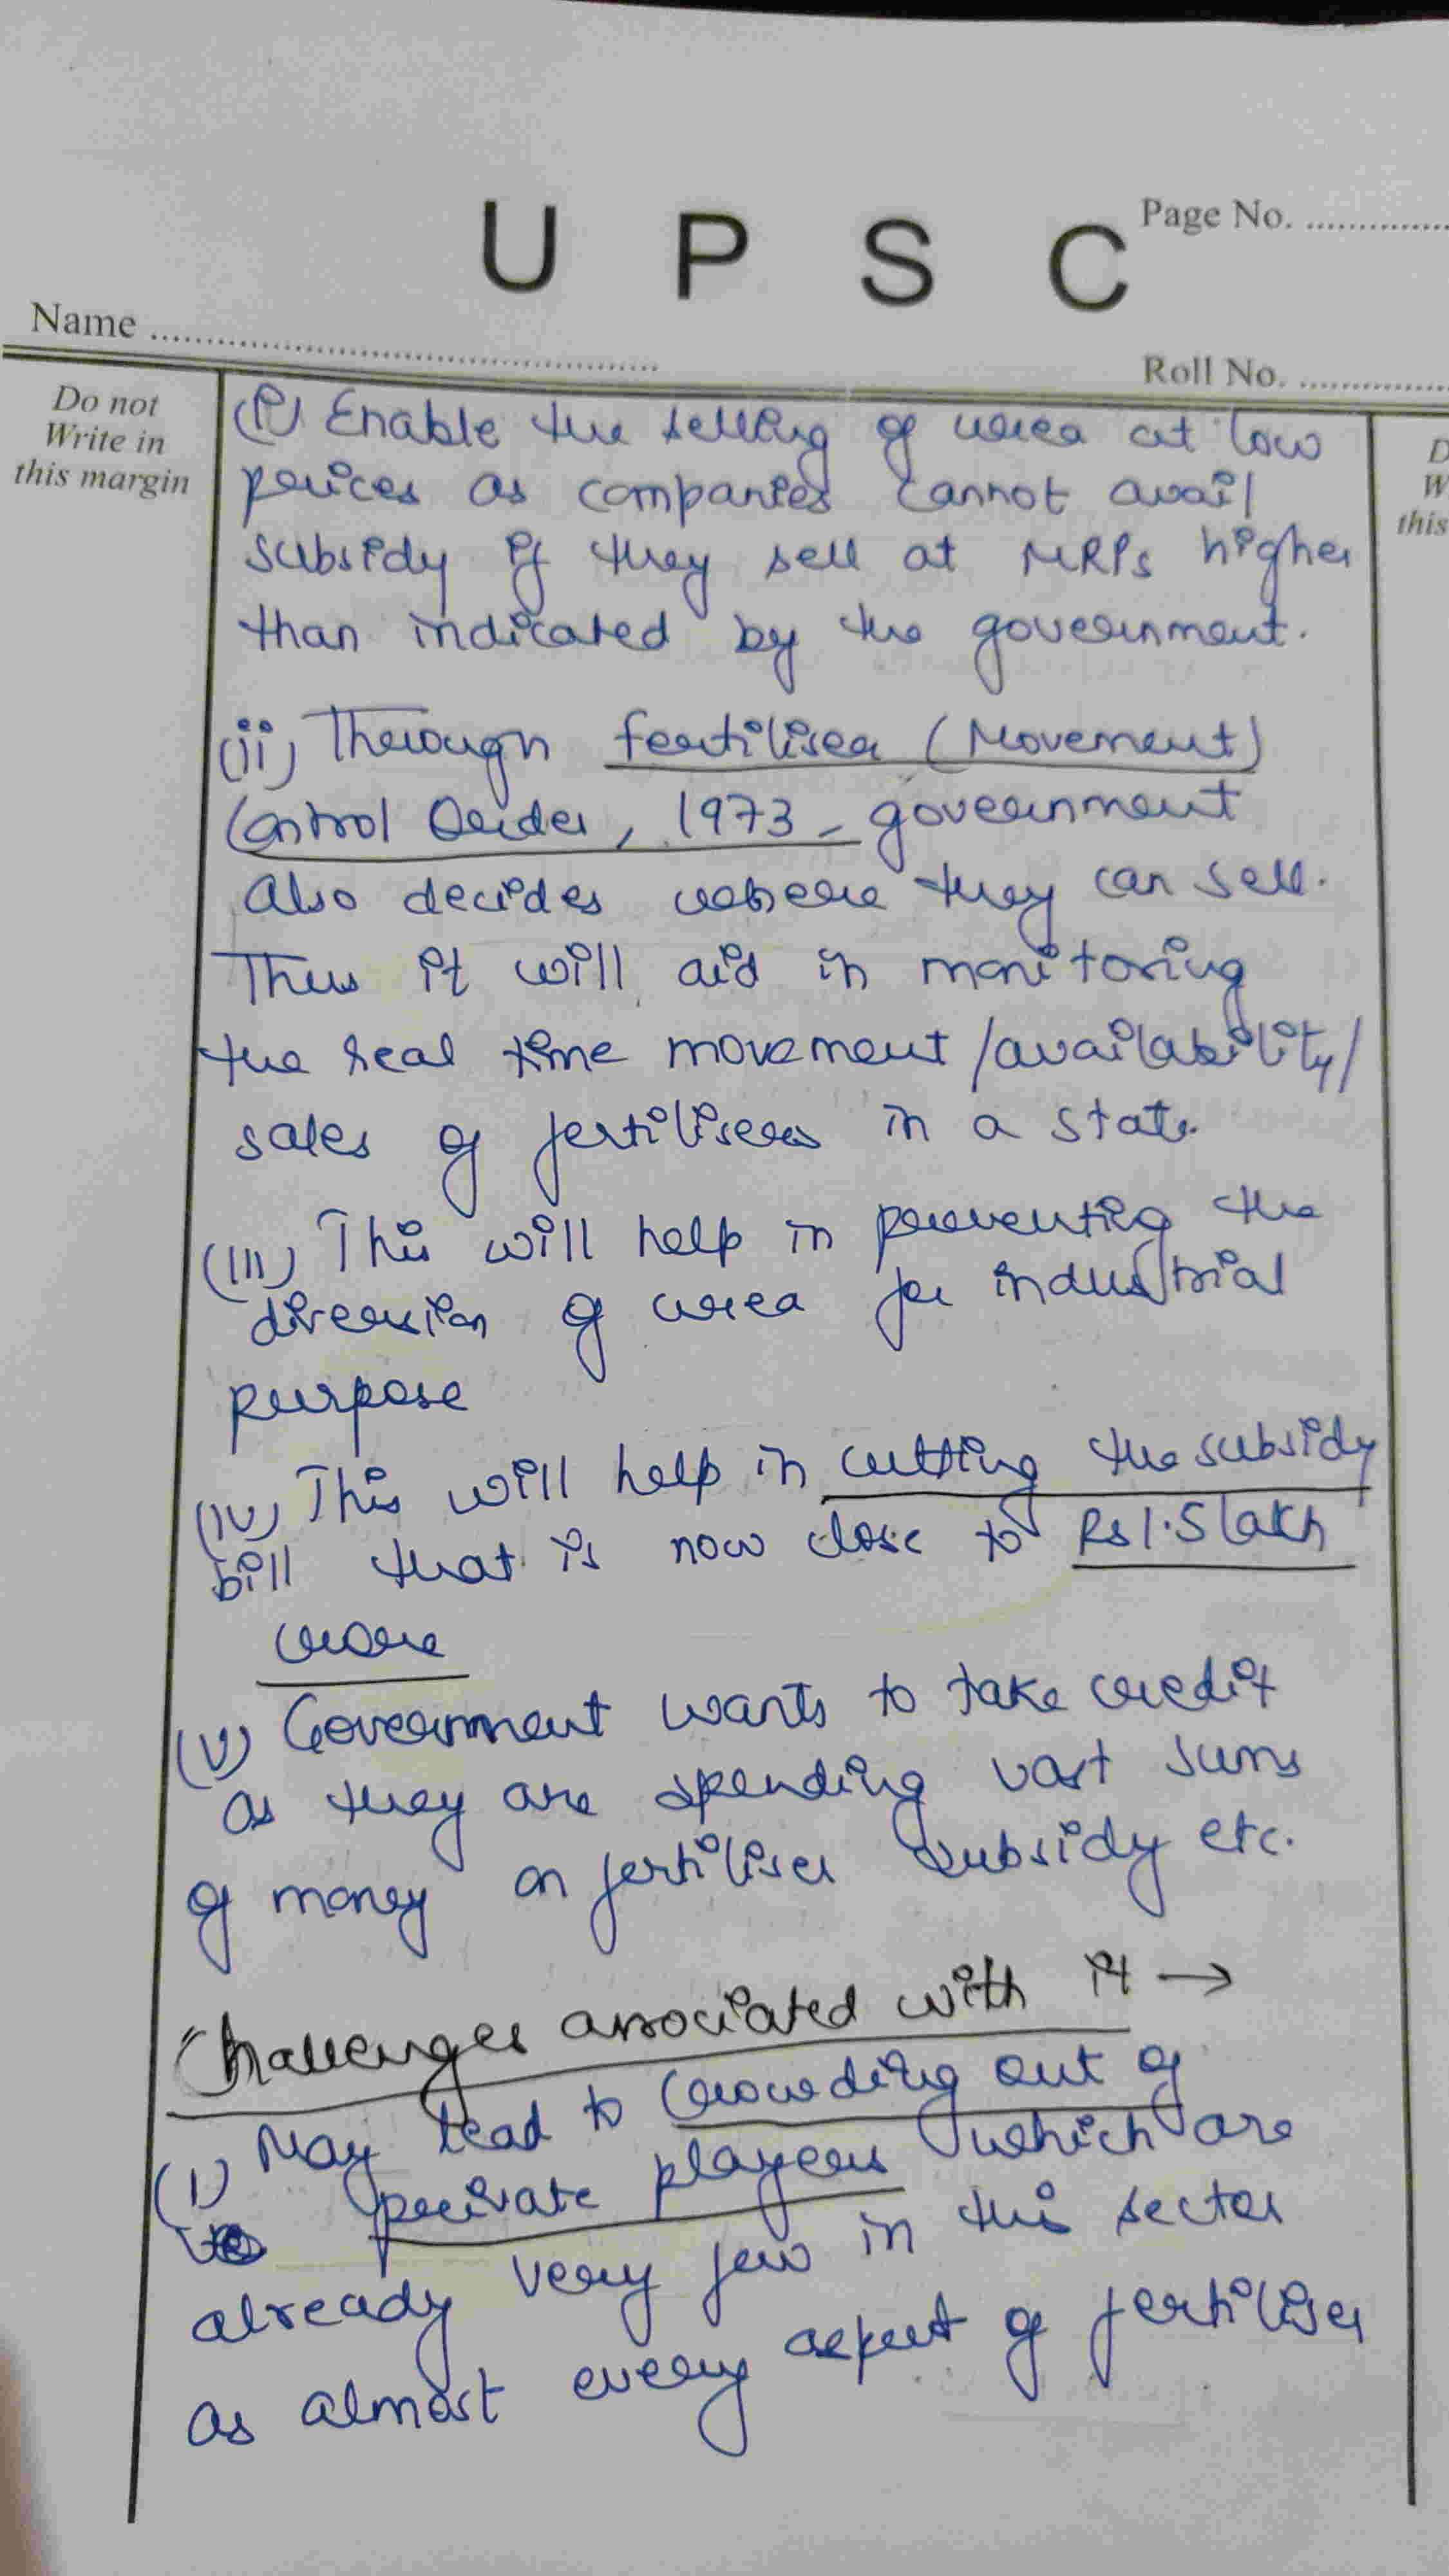 Page No. ................
U P S C
Name ................................................
Roll No. ................
Do not
Write in
this margin
D
W
this
(i) Enable the selling of urea at low
prices as companies cannot avail
subsidy if they sell at MRPs higher
than indicated by the government.
(ii) Through Fertiliser (Movement)
Control Order, 1973 - government
also decides where they can sell.
Thus it will aid in monitoring
the real time movement/availability/
sales of fertilisers in a state.
(iii) This will help in preventing the
diversion of urea for industrial
purpose
(iv) This will help in cutting the subsidy
bill that is now close to Rs 1.5 lakh
crore
(v) Government wants to take credit
as they are spending vast sums
of money on fertiliser subsidy etc.
Challenges associated with it →
(i) May lead to Crowding out of
private players which are
already very few in this sector
as almost every aspect of fertiliser